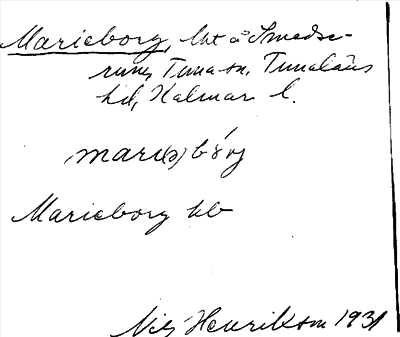 Marieborg, lht å Smedse-
rum, Tuna sn, Tunaläns
hd, Kalmar l.
mari(ə)bórj
Marieborg hb
Nils Henrikson 1931